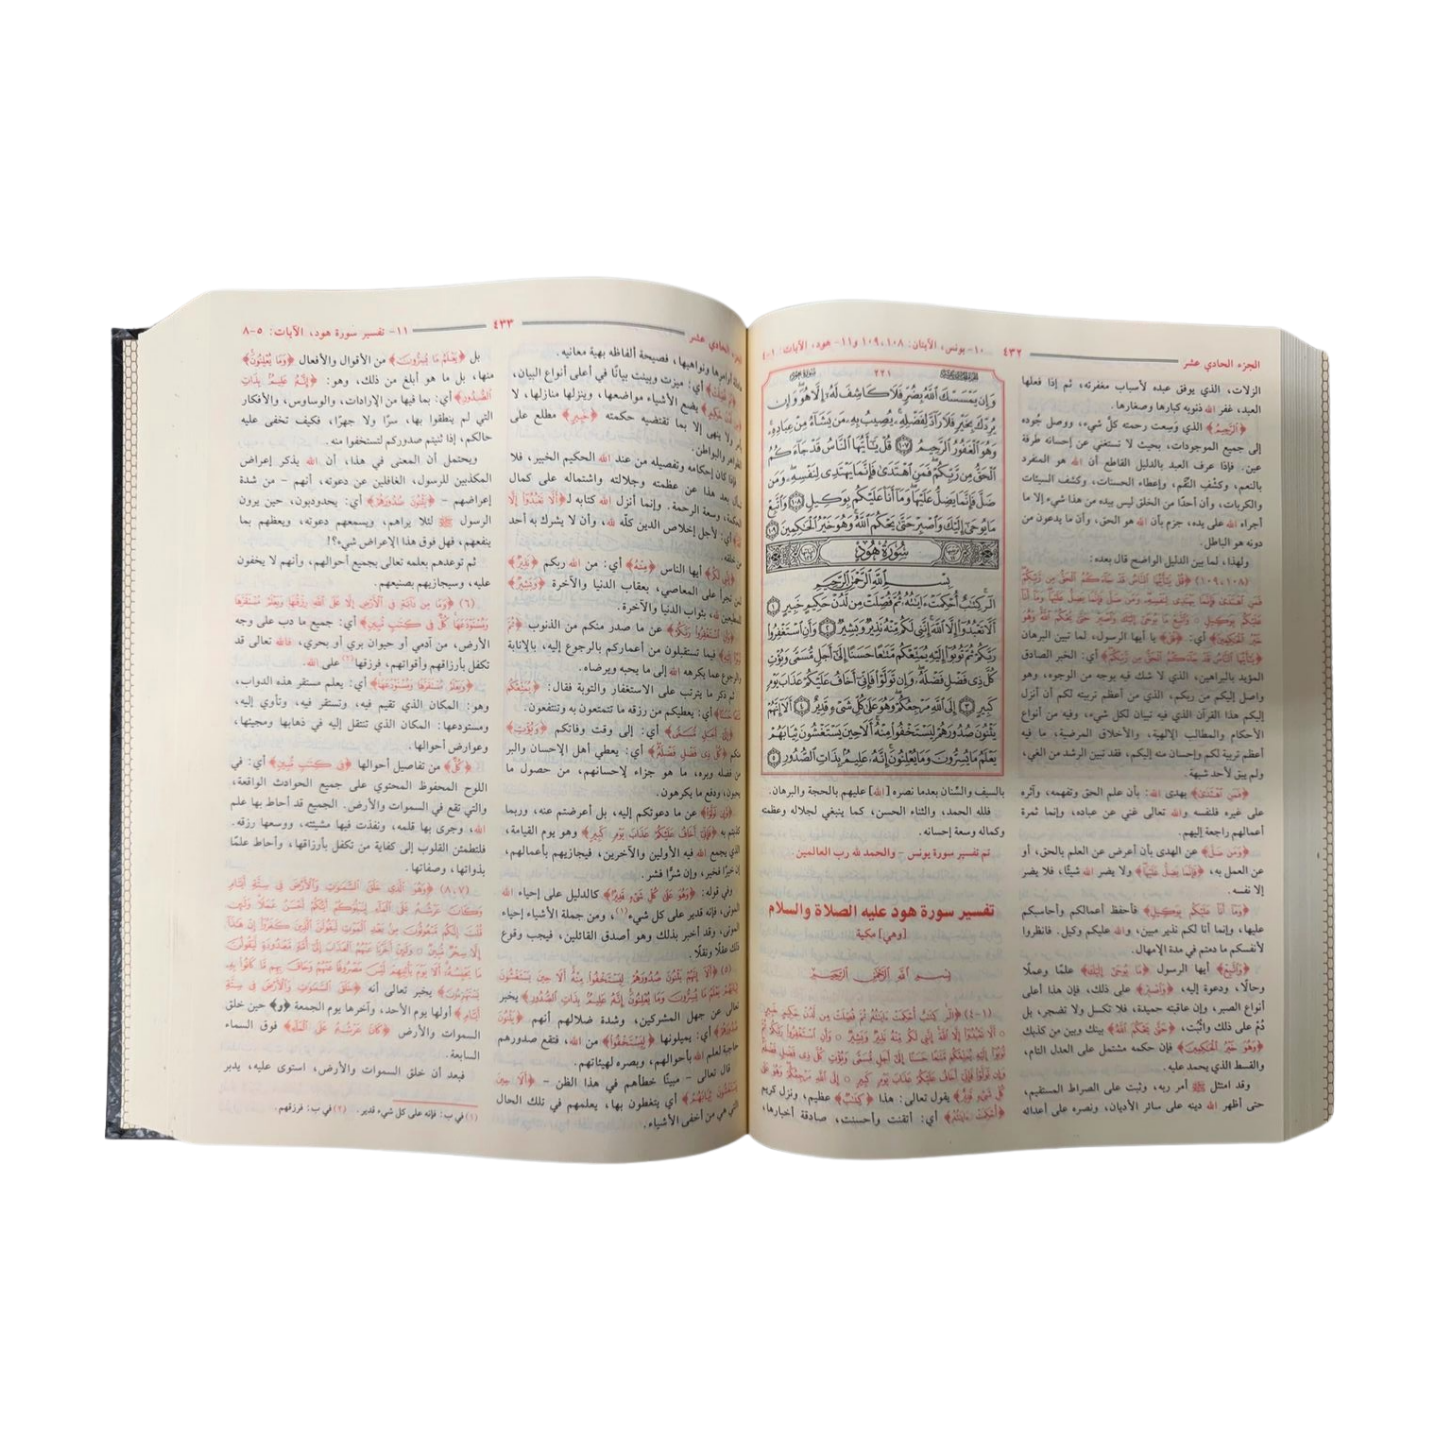 الجزء الحادي عشر
٤٣٢
١٠- يونس، الآيتان: ١٠٨، ١٠٩ و١١- هود، الآيات: ١-٤
الزلات، الذي يوفق عبده لأسباب مغفرته، ثم إذا فعلها
العبد، غفر الله ذنوبه كبارها وصغارها.
﴿الرَّحِيمُ﴾ الذي وُسعت رحمته كلَّ شيء، ووصل جُوده
إلى جميع الموجودات، بحيث لا تستغني عن إحسانه طرفة
عين. فإذا عرف العبد بالدليل القاطع أن الله هو المنفرد
بالنعم، وكشْف النِّقم، وإعطاء الحسنات، وكشف السيئات
والكربات، وأن أحدًا من الخلق ليس بيده من هذا شيء إلا ما
أجراه الله على يده، جزم بأن الله هو الحق، وأن ما يدعون من
دونه هو الباطل.
ولهذا، لما بين الدليل الواضح قال بعده:
(١٠٨، ١٠٩) ﴿قُلْ يَا أَيُّهَا النَّاسُ قَدْ جَاءَكُمُ الْحَقُّ مِن رَّبِّكُمْ
فَمَنِ اهْتَدَى فَإِنَّمَا يَهْتَدِي لِنَفْسِهِ وَمَن ضَلَّ فَإِنَّمَا يَضِلُّ عَلَيْهَا وَمَا أَنَا
عَلَيْكُم بِوَكِيلٍ ۝ وَاتَّبِعْ مَا يُوحَى إِلَيْكَ وَاصْبِرْ حَتَّى يَحْكُمَ اللَّهُ وَهُوَ
خَيْرُ الْحَاكِمِينَ﴾ أي: ﴿قُلْ﴾ يا أيها الرسول، لما تبين البرهان
﴿يَا أَيُّهَا النَّاسُ قَدْ جَاءَكُمُ الْحَقُّ مِن رَّبِّكُمْ﴾ أي: الخبر الصادق
المؤيد بالبراهين، الذي لا شك فيه بوجه من الوجوه، وهو
واصل إليكم من ربكم، الذي من أعظم تربيته لكم أن أنزل
إليكم هذا القرآن الذي فيه تبيان لكل شيء، وفيه من أنواع
الأحكام والمطالب الإلهية، والأخلاق المرضية، ما فيه
أعظم تربية لكم وإحسان منه إليكم، فقد تبين الرشد من الغي،
ولم يبق لأحد شبهة.
﴿فَمَنِ اهْتَدَى﴾ بهدى الله: بأن علم الحق وتفهمه، وآثره
على غيره فلنفسه والله تعالى غني عن عباده، وإنما ثمرة
أعمالهم راجعة إليهم.
﴿وَمَن ضَلَّ﴾ عن الهدى بأن أعرض عن العلم بالحق، أو
عن العمل به، ﴿فَإِنَّمَا يَضِلُّ عَلَيْهَا﴾ ولا يضر الله شيئًا، فلا يضر
إلا نفسه.
﴿وَمَا أَنَا عَلَيْكُم بِوَكِيلٍ﴾ فأحفظ أعمالكم وأحاسبكم
عليها، وإنما أنا لكم نذير مبين، والله عليكم وكيل. فانظروا
لأنفسكم ما دمتم في مدة الإمهال.
﴿وَاتَّبِعْ﴾ أيها الرسول ﴿مَا يُوحَى إِلَيْكَ﴾ علمًا وعملًا
وحالًا، ودعوة إليه، ﴿وَاصْبِرْ﴾ على ذلك، فإن هذا أعلى
أنواع الصبر، وإن عاقبته حميدة، فلا تكسل ولا تضجر، بل
دُمْ على ذلك واثْبُت، ﴿حَتَّى يَحْكُمَ اللَّهُ﴾ بينك وبين من كذبك
﴿وَهُوَ خَيْرُ الْحَاكِمِينَ﴾ فإن حكمه مشتمل على العدل التام،
والقسط الذي يحمد عليه.
وقد امتثل ﷺ أمر ربه، وثبت على الصراط المستقيم،
حتى أظهر الله دينه على سائر الأديان، ونصره على أعدائه
٢٢١
وَإِن يَمْسَسْكَ اللَّهُ بِضُرٍّ فَلَا كَاشِفَ لَهُ إِلَّا هُوَ وَإِن
يُرِدْكَ بِخَيْرٍ فَلَا رَادَّ لِفَضْلِهِ يُصِيبُ بِهِ مَن يَشَاءُ مِنْ عِبَادِهِ
وَهُوَ الْغَفُورُ الرَّحِيمُ ١٠٧ قُلْ يَا أَيُّهَا النَّاسُ قَدْ جَاءَكُمُ
الْحَقُّ مِن رَّبِّكُمْ فَمَنِ اهْتَدَى فَإِنَّمَا يَهْتَدِي لِنَفْسِهِ وَمَن
ضَلَّ فَإِنَّمَا يَضِلُّ عَلَيْهَا وَمَا أَنَا عَلَيْكُم بِوَكِيلٍ ١٠٨ وَاتَّبِعْ
مَا يُوحَى إِلَيْكَ وَاصْبِرْ حَتَّى يَحْكُمَ اللَّهُ وَهُوَ خَيْرُ الْحَاكِمِينَ ١٠٩
سُورَةُ هُودٍ
بِسْمِ اللَّهِ الرَّحْمَٰنِ الرَّحِيمِ
الر كِتَابٌ أُحْكِمَتْ آيَاتُهُ ثُمَّ فُصِّلَتْ مِن لَّدُنْ حَكِيمٍ خَبِيرٍ ١
أَلَّا تَعْبُدُوا إِلَّا اللَّهَ إِنَّنِي لَكُم مِّنْهُ نَذِيرٌ وَبَشِيرٌ ٢ وَأَنِ اسْتَغْفِرُوا
رَبَّكُمْ ثُمَّ تُوبُوا إِلَيْهِ يُمَتِّعْكُم مَّتَاعًا حَسَنًا إِلَى أَجَلٍ مُّسَمًّى وَيُؤْتِ
كُلَّ ذِي فَضْلٍ فَضْلَهُ وَإِن تَوَلَّوْا فَإِنِّي أَخَافُ عَلَيْكُمْ عَذَابَ يَوْمٍ
كَبِيرٍ ٣ إِلَى اللَّهِ مَرْجِعُكُمْ وَهُوَ عَلَى كُلِّ شَيْءٍ قَدِيرٌ ٤ أَلَا إِنَّهُمْ
يَثْنُونَ صُدُورَهُمْ لِيَسْتَخْفُوا مِنْهُ أَلَا حِينَ يَسْتَغْشُونَ ثِيَابَهُمْ
يَعْلَمُ مَا يُسِرُّونَ وَمَا يُعْلِنُونَ إِنَّهُ عَلِيمٌ بِذَاتِ الصُّدُورِ ٥
بالسيف والسِّنان بعدما نصره [الله] عليهم بالحجة والبرهان.
فلله الحمد، والثناء الحسن، كما ينبغي لجلاله وعظمته
وكماله وسعة إحسانه.
تم تفسير سورة يونس - والحمد لله رب العالمين.
تفسير سورة هود عليه الصلاة والسلام
[وهي] مكية
بسم الله الرحمن الرحيم
(١-٤) ﴿الر كِتَابٌ أُحْكِمَتْ آيَاتُهُ ثُمَّ فُصِّلَتْ مِن لَّدُنْ حَكِيمٍ خَبِيرٍ
۝ أَلَّا تَعْبُدُوا إِلَّا اللَّهَ إِنَّنِي لَكُم مِّنْهُ نَذِيرٌ وَبَشِيرٌ ۝ وَأَنِ اسْتَغْفِرُوا رَبَّكُمْ ثُمَّ
تُوبُوا إِلَيْهِ يُمَتِّعْكُم مَّتَاعًا حَسَنًا إِلَى أَجَلٍ مُّسَمًّى وَيُؤْتِ كُلَّ ذِي فَضْلٍ فَضْلَهُ
وَإِن تَوَلَّوْا فَإِنِّي أَخَافُ عَلَيْكُمْ عَذَابَ يَوْمٍ كَبِيرٍ ۝ إِلَى اللَّهِ مَرْجِعُكُمْ وَهُوَ عَلَى
كُلِّ شَيْءٍ قَدِيرٌ﴾ يقول تعالى: هذا ﴿كِتَابٌ﴾ عظيم، ونزل كريم
﴿أُحْكِمَتْ آيَاتُهُ﴾ أي: أتقنت وأحسنت، صادقة أخبارها،
الجزء الحادي عشر
٤٣٣
١١- تفسير سورة هود، الآيات: ٥-٨
عادلة أوامرها ونواهيها، فصيحة ألفاظه بهية معانيه.
﴿ثُمَّ فُصِّلَتْ﴾ أي: ميزت وبينت بيانًا في أعلى أنواع البيان،
﴿مِن لَّدُنْ حَكِيمٍ﴾ يضع الأشياء مواضعها، وينزلها منازلها، لا
يأمر ولا ينهى إلا بما تقتضيه حكمته ﴿خَبِيرٍ﴾ مطلع على
الظواهر والبواطن.
فإذا كان إحكامه وتفصيله من عند الله الحكيم الخبير، فلا
تسأل بعد هذا عن عظمته وجلالته واشتماله على كمال
الحكمة، وسعة الرحمة. وإنما أنزل الله كتابه لـ﴿أَلَّا تَعْبُدُوا إِلَّا
اللَّهَ﴾ أي: لأجل إخلاص الدين كلّه لله، وأن لا يشرك به أحد
من خلقه.
﴿إِنَّنِي لَكُم﴾ أيها الناس ﴿مِّنْهُ﴾ أي: من الله ربكم ﴿نَذِيرٌ﴾
لمن تجرأ على المعاصي، بعقاب الدنيا والآخرة ﴿وَبَشِيرٌ﴾
للمطيعين لله، بثواب الدنيا والآخرة.
﴿وَأَنِ اسْتَغْفِرُوا رَبَّكُمْ﴾ عن ما صدر منكم من الذنوب ﴿ثُمَّ
تُوبُوا إِلَيْهِ﴾ فيما تستقبلون من أعماركم بالرجوع إليه، بالإنابة
والرجوع عما يكرهه الله إلى ما يحبه ويرضاه.
ثم ذكر ما يترتب على الاستغفار والتوبة فقال: ﴿يُمَتِّعْكُم
مَّتَاعًا حَسَنًا﴾ أي: يعطيكم من رزقه ما تتمتعون به وتنتفعون.
﴿إِلَى أَجَلٍ مُّسَمًّى﴾ أي: إلى وقت وفاتكم ﴿وَيُؤْتِ﴾
منكم ﴿كُلَّ ذِي فَضْلٍ فَضْلَهُ﴾ أي: يعطي أهل الإحسان والبر
من فضله وبره، ما هو جزاء لإحسانهم، من حصول ما
يحبون، ودفع ما يكرهون.
﴿وَإِن تَوَلَّوْا﴾ عن ما دعوتكم إليه، بل أعرضتم عنه، وربما
كذبتم به ﴿فَإِنِّي أَخَافُ عَلَيْكُمْ عَذَابَ يَوْمٍ كَبِيرٍ﴾ وهو يوم القيامة،
الذي يجمع الله فيه الأولين والآخرين، فيجازيهم بأعمالهم،
إن خيرًا فخير، وإن شرًّا فشر.
وفي قوله: ﴿وَهُوَ عَلَى كُلِّ شَيْءٍ قَدِيرٌ﴾ كالدليل على إحياء الله
الموتى، فإنه قدير على كل شيء(١)، ومن جملة الأشياء إحياء
الموتى، وقد أخبر بذلك وهو أصدق القائلين، فيجب وقوع
ذلك عقلًا ونقلًا.
(٥) ﴿أَلَا إِنَّهُمْ يَثْنُونَ صُدُورَهُمْ لِيَسْتَخْفُوا مِنْهُ أَلَا حِينَ يَسْتَغْشُونَ
ثِيَابَهُمْ يَعْلَمُ مَا يُسِرُّونَ وَمَا يُعْلِنُونَ إِنَّهُ عَلِيمٌ بِذَاتِ الصُّدُورِ﴾ يخبر
تعالى عن جهل المشركين، وشدة ضلالهم أنهم ﴿يَثْنُونَ
صُدُورَهُمْ﴾ أي: يميلونها ﴿لِيَسْتَخْفُوا﴾ من الله، فتقع صدورهم
حاجبة لعلم الله بأحوالهم، وبصره لهيئاتهم.
قال تعالى – مبينًا خطأهم في هذا الظن – ﴿أَلَا حِينَ
يَسْتَغْشُونَ ثِيَابَهُمْ﴾ أي يتغطون بها، يعلمهم في تلك الحال
التي هي من أخفى الأشياء.
بل ﴿يَعْلَمُ مَا يُسِرُّونَ﴾ من الأقوال والأفعال ﴿وَمَا يُعْلِنُونَ﴾
منها، بل ما هو أبلغ من ذلك، وهو: ﴿إِنَّهُ عَلِيمٌ بِذَاتِ
الصُّدُورِ﴾ أي: بما فيها من الإرادات، والوساوس، والأفكار
التي لم ينطقوا بها، سرًّا ولا جهرًا، فكيف تخفى عليه
حالكم، إذا ثنيتم صدوركم لتستخفوا منه.
ويحتمل أن المعنى في هذا، أن الله يذكر إعراض
المكذبين للرسول، الغافلين عن دعوته، أنهم – من شدة
إعراضهم – ﴿يَثْنُونَ صُدُورَهُمْ﴾ أي: يحدودبون، حين يرون
الرسول ﷺ لئلا يراهم، ويسمعهم دعوته، ويعظهم بما
ينفعهم، فهل فوق هذا الإعراض شيء؟!
ثم توعدهم بعلمه تعالى بجميع أحوالهم، وأنهم لا يخفون
عليه، وسيجازيهم بصنيعهم.
(٦) ﴿وَمَا مِن دَابَّةٍ فِي الْأَرْضِ إِلَّا عَلَى اللَّهِ رِزْقُهَا وَيَعْلَمُ مُسْتَقَرَّهَا
وَمُسْتَوْدَعَهَا كُلٌّ فِي كِتَابٍ مُّبِينٍ﴾ أي: جميع ما دب على وجه
الأرض، من آدمي أو حيوان بري أو بحري، فالله تعالى قد
تكفل بأرزاقهم وأقواتهم، فرزقها(٢) على الله.
﴿وَيَعْلَمُ مُسْتَقَرَّهَا وَمُسْتَوْدَعَهَا﴾ أي: يعلم مستقر هذه الدواب،
وهو: المكان الذي تقيم فيه، وتستقر فيه، وتأوي إليه،
ومستودعها: المكان الذي تنتقل إليه في ذهابها ومجيئها،
وعوارض أحوالها.
﴿كُلٌّ﴾ من تفاصيل أحوالها ﴿فِي كِتَابٍ مُّبِينٍ﴾ أي: في
اللوح المحفوظ المحتوي على جميع الحوادث الواقعة،
والتي تقع في السموات والأرض. الجميع قد أحاط بها علم
الله، وجرى بها قلمه، ونفذت فيها مشيئته، ووسعها رزقه.
فلتطمئن القلوب إلى كفاية من تكفل بأرزاقها، وأحاط علمًا
بذواتها، وصفاتها.
(٧، ٨) ﴿وَهُوَ الَّذِي خَلَقَ السَّمَاوَاتِ وَالْأَرْضَ فِي سِتَّةِ أَيَّامٍ
وَكَانَ عَرْشُهُ عَلَى الْمَاءِ لِيَبْلُوَكُمْ أَيُّكُمْ أَحْسَنُ عَمَلًا وَلَئِن
قُلْتَ إِنَّكُم مَّبْعُوثُونَ مِن بَعْدِ الْمَوْتِ لَيَقُولَنَّ الَّذِينَ كَفَرُوا إِنْ هَذَا
إِلَّا سِحْرٌ مُّبِينٌ ۝ وَلَئِنْ أَخَّرْنَا عَنْهُمُ الْعَذَابَ إِلَى أُمَّةٍ مَّعْدُودَةٍ لَّيَقُولُنَّ
مَا يَحْبِسُهُ أَلَا يَوْمَ يَأْتِيهِمْ لَيْسَ مَصْرُوفًا عَنْهُمْ وَحَاقَ بِهِم مَّا كَانُوا بِهِ
يَسْتَهْزِئُونَ﴾ يخبر تعالى أنه ﴿خَلَقَ السَّمَاوَاتِ وَالْأَرْضَ فِي سِتَّةِ
أَيَّامٍ﴾ أولها يوم الأحد، وآخرها يوم الجمعة ﴿و﴾ حين خلق
السموات والأرض ﴿كَانَ عَرْشُهُ عَلَى الْمَاءِ﴾ فوق السماء
السابعة.
فبعد أن خلق السموات والأرض، استوى عليه، يدبر
(١) في ب: فإنه على كل شيء قدير. (٢) في ب: فرزقهم.